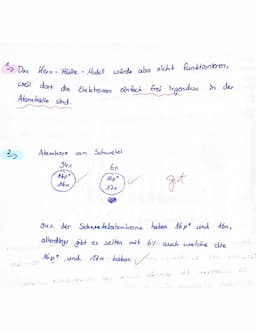 1.) Das Kern-Hülle-Modell würde also nicht funktionieren,
weil dort die Elektronen einfach frei irgendwo in der
Atomhülle sind.
2.) Atomkern von Schwefel
94% 6%
16p⁺ 16p⁺
16n 17n
gut
94% der Schwefelatomkerne haben 16p⁺ und 16n,
allerdings gibt es selten mit 6% auch welche die
16p⁺ und 17n haben.